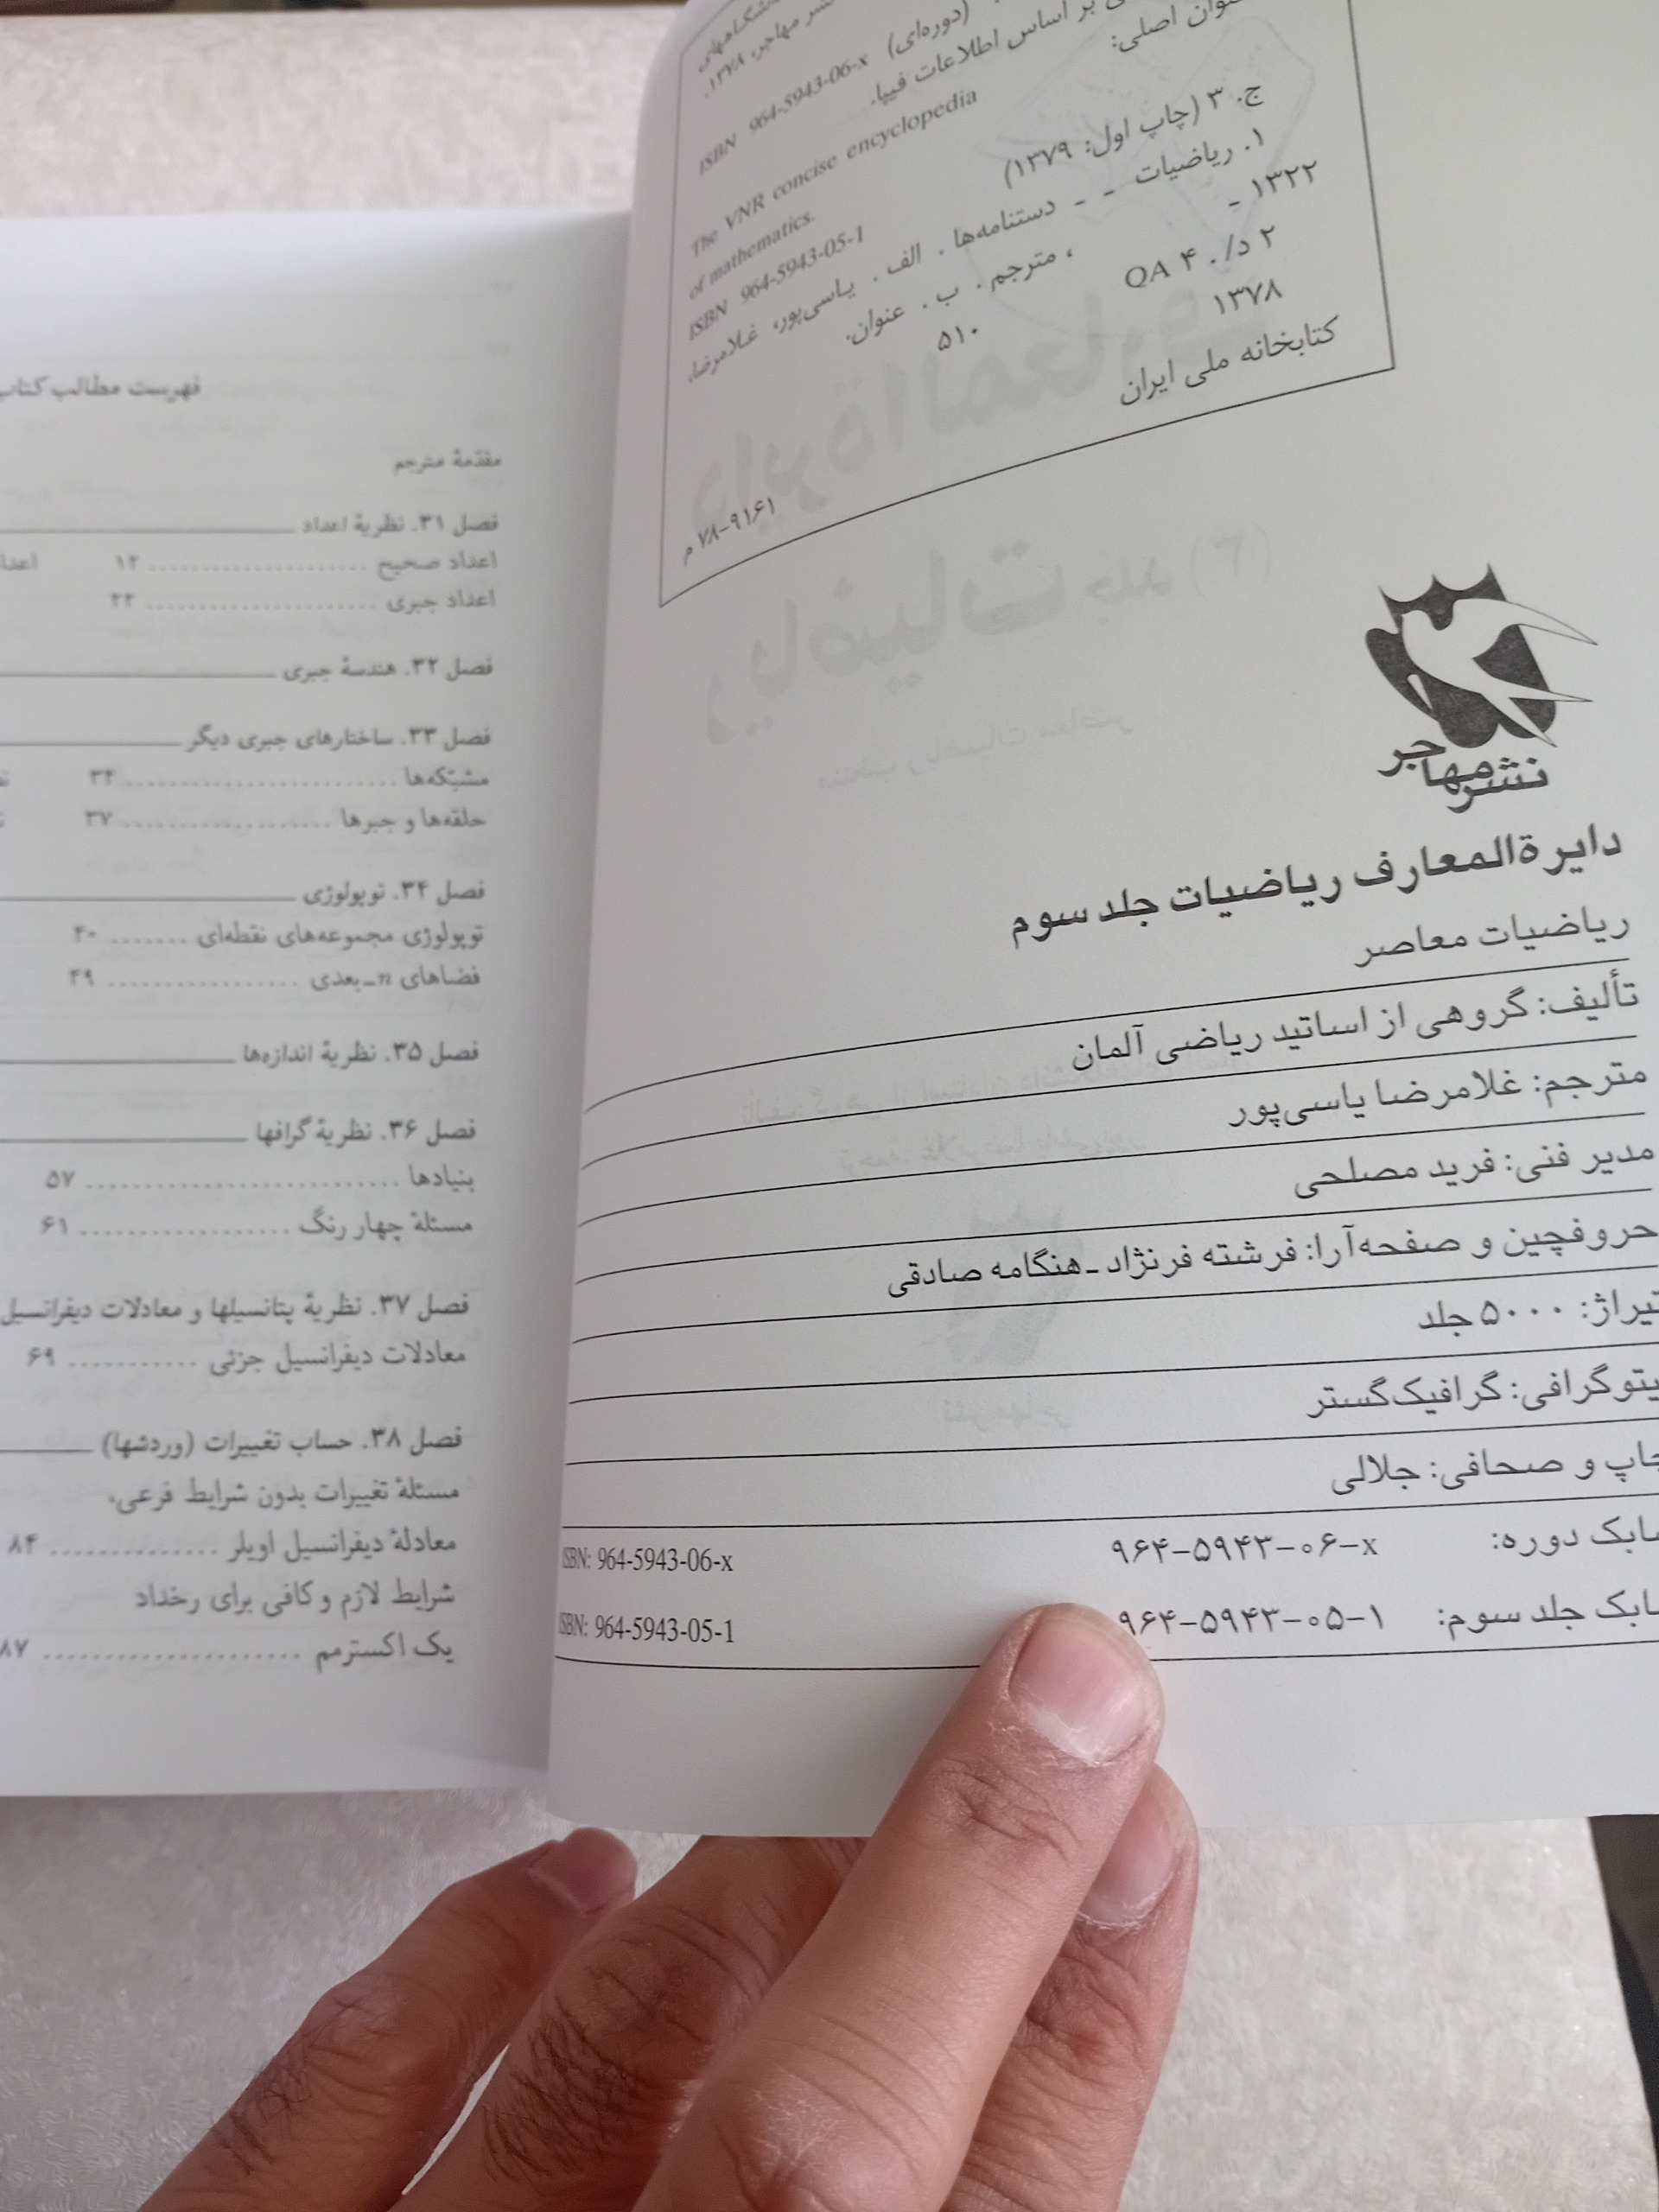 نشر مهاجر، ۱۳۷۸.
ISBN 964-5943-06-x (دوره‌ای)
بر اساس اطلاعات فیپا.
عنوان اصلی:
The VNR concise encyclopedia
of mathematics.
ISBN 964-5943-05-1
ج. ۳ (چاپ اول: ۱۳۷۹)
۱. ریاضیات - - دستنامه‌ها . الف . یاسی‌پور، غلامرضا،
۱۳۲۲ -
، مترجم . ب . عنوان.
۲ د/. ۴ QA
۵۱۰
۱۳۷۸
کتابخانه ملی ایران
۷۸-۹۱۶۱ م
نشر مهاجر
دایرةالمعارف ریاضیات جلد سوم
ریاضیات معاصر
تألیف: گروهی از اساتید ریاضی آلمان
مترجم: غلامرضا یاسی‌پور
مدیر فنی: فرید مصلحی
حروفچین و صفحه‌آرا: فرشته فرنژاد - هنگامه صادقی
تیراژ: ۵۰۰۰ جلد
یتوگرافی: گرافیک‌گستر
چاپ و صحافی: جلالی
شابک دوره: ۹۶۴-۵۹۴۳-۰۶-x ISBN: 964-5943-06-x
شابک جلد سوم: ۹۶۴-۵۹۴۳-۰۵-۱ ISBN: 964-5943-05-1
فهرست مطالب کتاب
مقدّمهٔ مترجم
فصل ۳۱. نظریهٔ اعداد
اعداد صحیح ..................... ۱۲
اعداد جبری ...................... ۲۲
فصل ۳۲. هندسهٔ جبری
فصل ۳۳. ساختارهای جبری دیگر
مشبّکه‌ها .......................... ۳۴
حلقه‌ها و جبرها .................... ۳۷
فصل ۳۴. توپولوژی
توپولوژی مجموعه‌های نقطه‌ای ....... ۴۰
فضاهای n-بعدی .................. ۴۹
فصل ۳۵. نظریهٔ اندازه‌ها
فصل ۳۶. نظریهٔ گرافها
بنیادها ............................ ۵۷
مسئلهٔ چهار رنگ ................... ۶۱
فصل ۳۷. نظریهٔ پتانسیلها و معادلات دیفرانسیل
معادلات دیفرانسیل جزئی ........... ۶۹
فصل ۳۸. حساب تغییرات (وردشها)
مسئلهٔ تغییرات بدون شرایط فرعی،
معادلهٔ دیفرانسیل اویلر .............. ۸۴
شرایط لازم و کافی برای رخداد
یک اکسترمم ...................... ۸۷